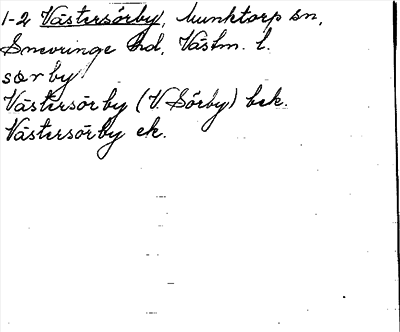 1-2 Västersörby, Munktorp sn,
Snevringe hd, Västm. l.
sœrby
Västersörby (V. Sörby) bek.
Västersörby ek.